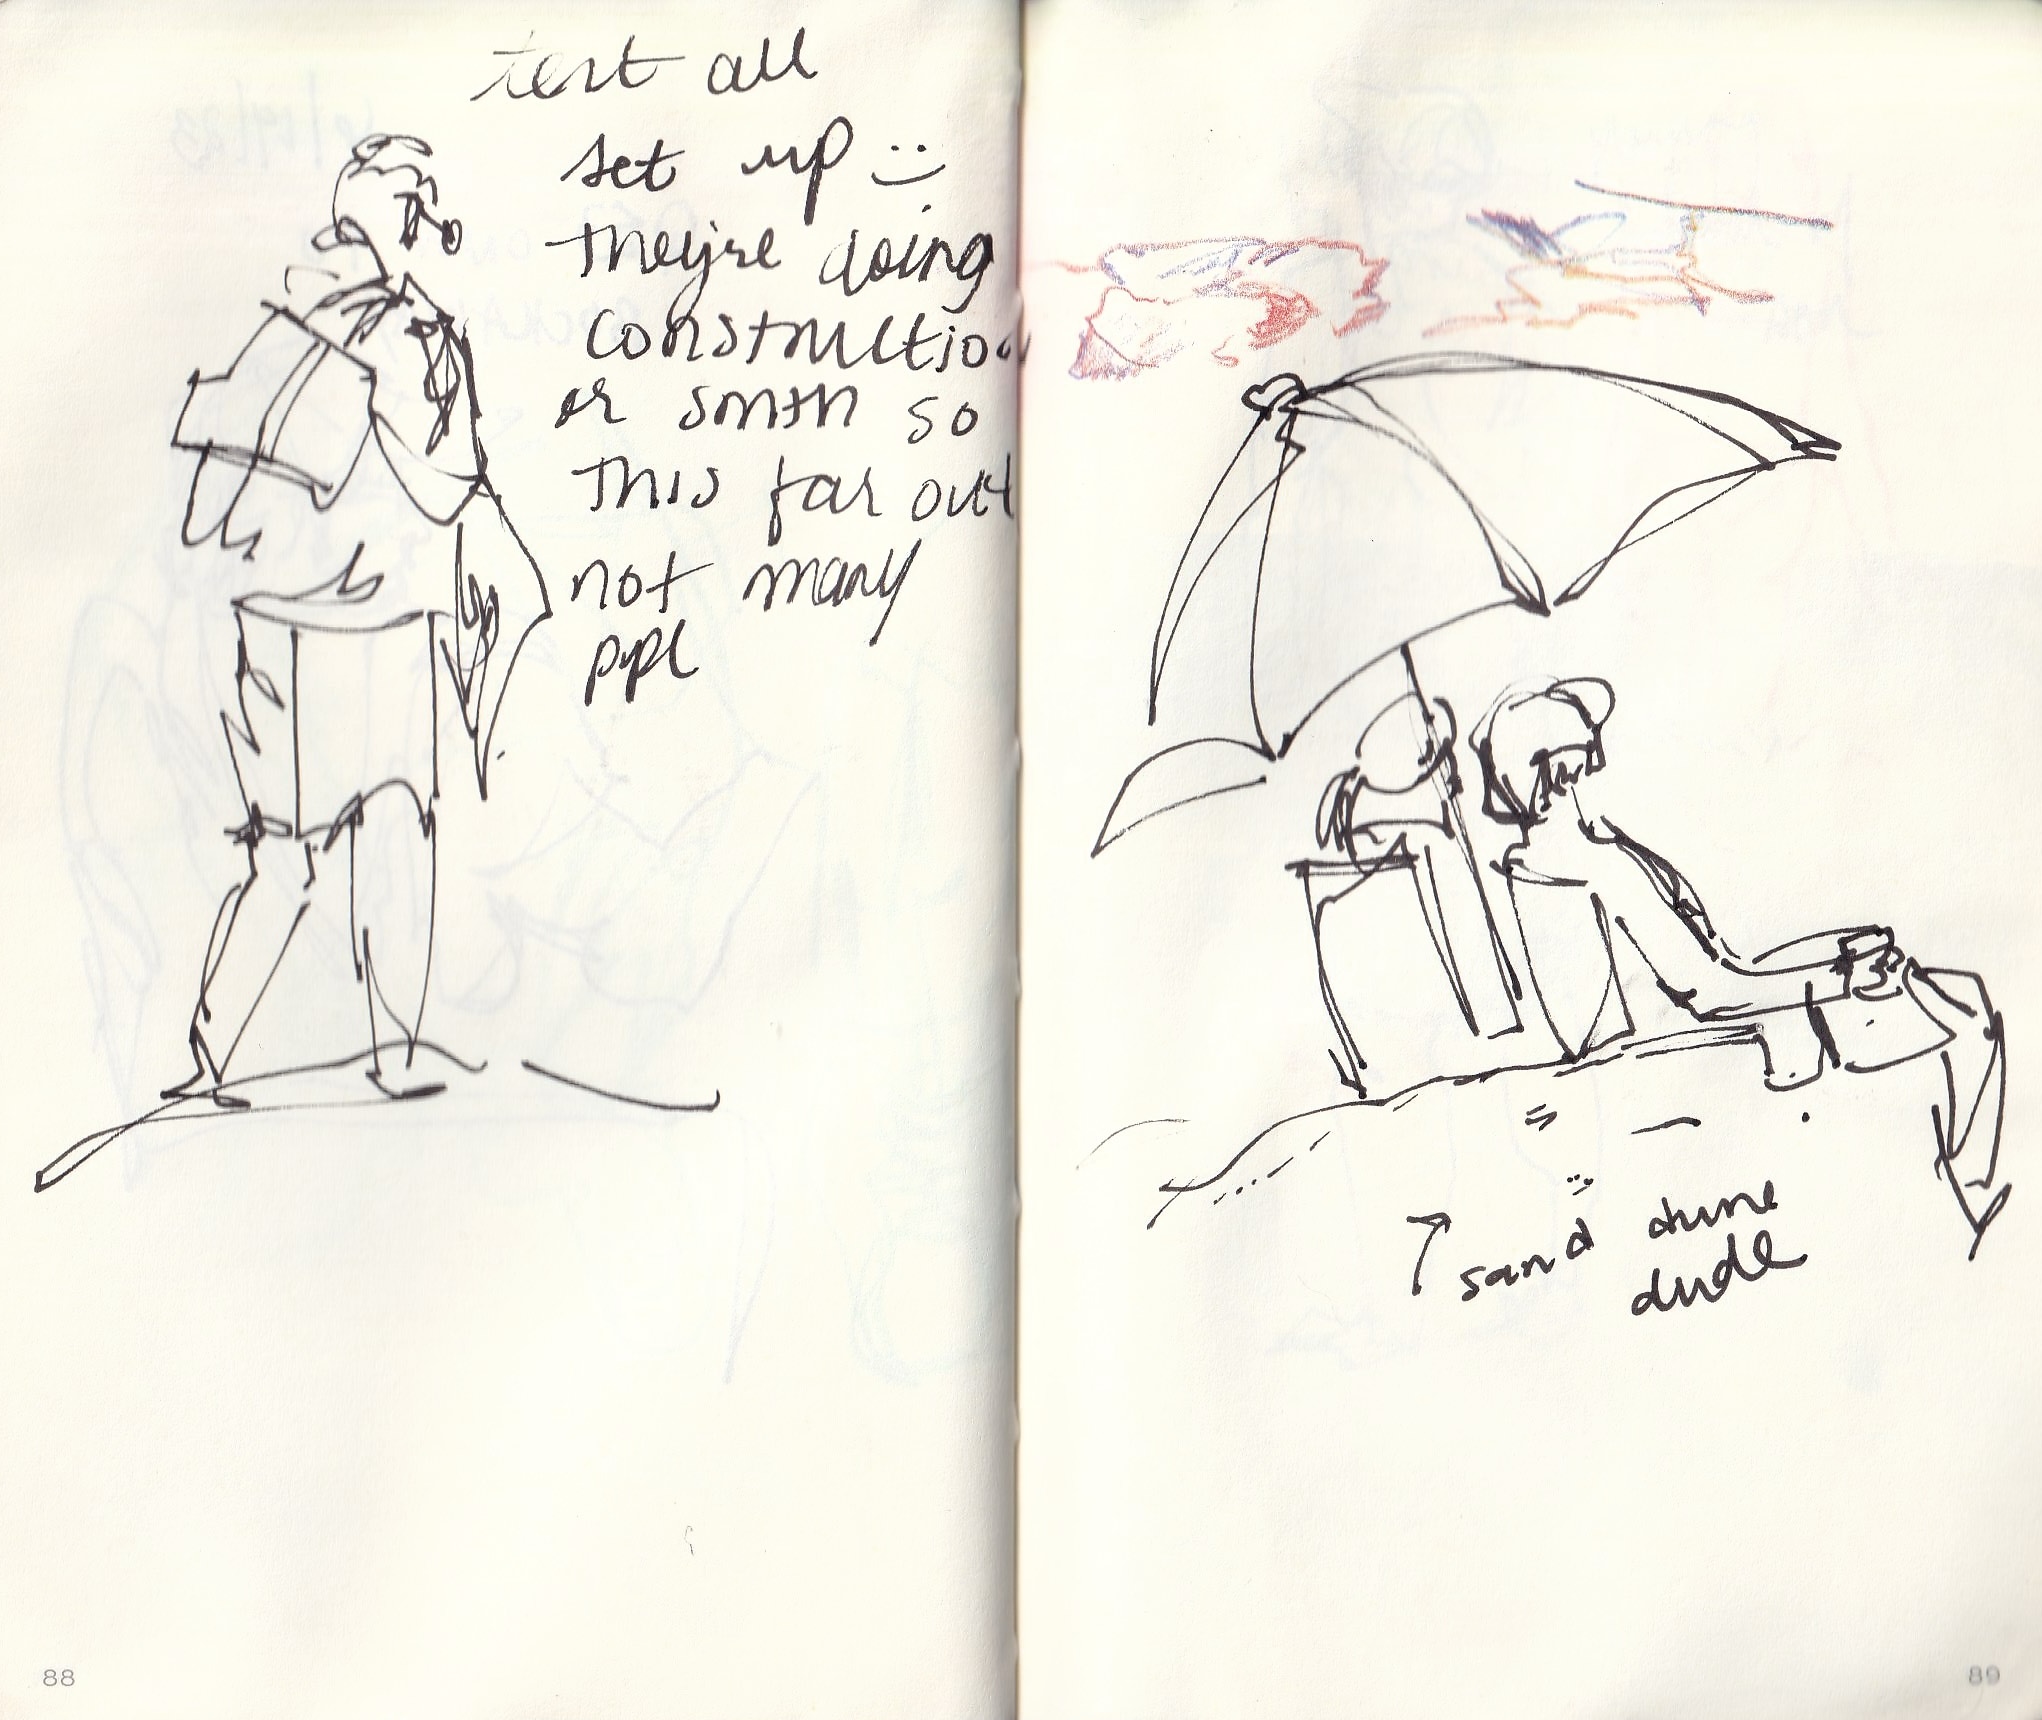 tent all
set up :)
they're doing
construction
or smth so
this far out
not many
ppl
↑ sand dune
dude
88
89